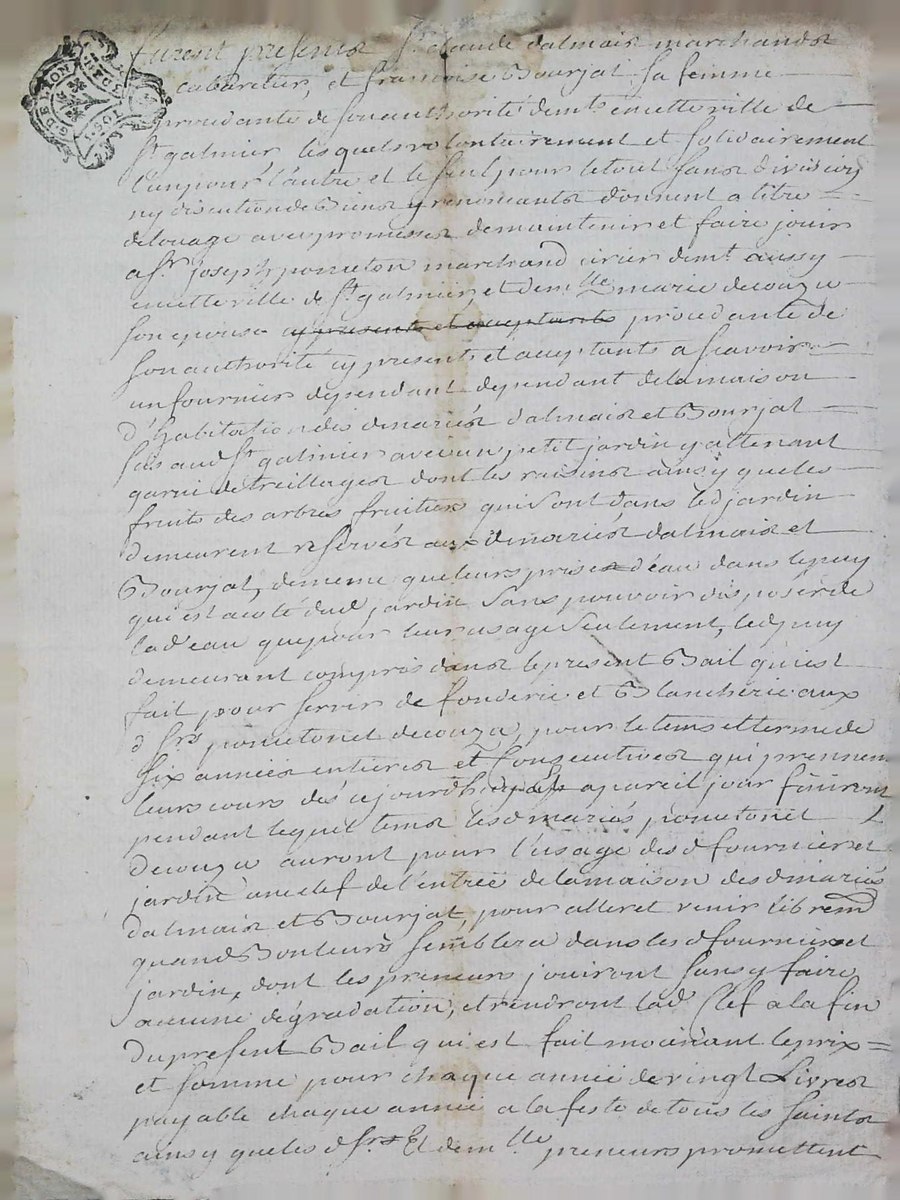 G DE LYON
furent presents Sr claude dalmais marchands
cabaretier, et francoise Bourjat sa femme
procedante de son authorité demts en cette ville de
St galmier, lesquels volontairement et solidairement
l'un pour l'autre et le seul pour le tout sans division
ny discution de Biens y renonceants donnent a titre
de louage avec promesses de maintenir et faire jouir
a Sr joseph ponceton marchand cirier demt aussy
en cette ville de St galmier, et demlle marie decouzu
son epouse cy presents et acceptants procedante de
son authorité cy presents et acceptants a scavoir
un fournier dependant dependant de la maison
d'habitation des d mariés dalmais et Bourjat
sis aud St galmier avec un petit jardin y attenant
garni de treillages dont les raisins ainsy que les
fruits des arbres fruitiers qui sont dans led jardin
demeurent reservés aux d mariés dalmais et
Bourjat, de meme que leurs prises d'eau dans le puy
qui est a coté dud jardin sans pouvoir disposer de
lad eau que pour leur usage seulement, led puy
demeurant compris dans le present Bail qui est
fait pour servir de fonderie et Blancherie aux
d Srs ponceton et decouzu, pour le tems et terme de
six années entieres et consecutives qui prennent
leurs cours dés cejourdhuy a pareil jour finiront
pendant lequel tems les d mariés ponceton et
decouzu auront pour l'usage des d fournier et
jardin une clef de l'entrée de la maison des d mariés
dalmais et Bourjat, pour aller et venir libremt
quand Bon leurs semblera dans les d fournier et
jardin, dont les preneurs jouiront sans y faire
aucune dégradation, et rendront lad clef a la fin
du present Bail qui est fait moienant le prix
et somme pour chaque année de vingt Livres
payable chaque année a la feste de tous les saints
ainsy que les d Srs et demlle preneurs promettent